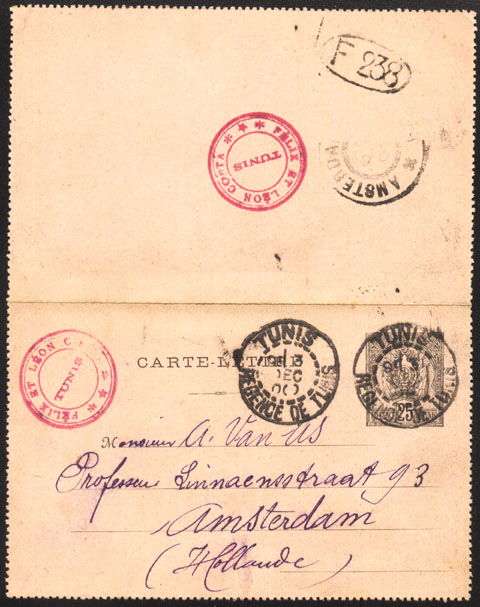 F 238
FÉLIX ET LÉON COSTA
TUNIS
AMSTERDA
FÉLIX ET LÉON C
TUNIS
CARTE-LETTRE
TUNIS
3
DEC
00
REGENCE DE TUNIS
TUNIS
3
25
Monsieur A. Van Os
Professeur Linnaeusstraat 93
Amsterdam
(Hollande)